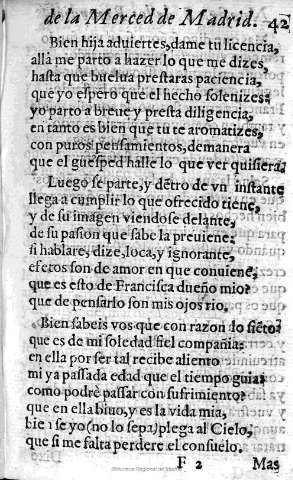 de la Merced de Madrid. 42
Bien hija aduiertes, dame tu licencia,
alla me parto a hazer lo que me dizes,
hasta que buelua prestaras paciencia,
que yo espero que el hecho solenizes:
yo parto a breue y presta diligencia,
en tanto es bien que tu te aromatizes,
con puros pensamientos, demanera
que el guesped halle lo que ver quisiera.
Luego se parte, y dẽtro de vn instante
llega a cumplir lo que ofrecido tiene,
y de su imagen viendose delante,
de su pasion que sabe la preuiene:
si hablare, dize, loca, y ignorante,
efetos son de amor en que conuiene,
que es esto de Francisca dueño mio?
que de pensarlo son mis ojos rio.
Bien sabeis vos que con razon lo siẽto?
que es de mi soledad fiel compañia:
en ella por ser tal recibe aliento
mi ya passada edad que el tiempo guia:
como podrè passar con sufrimiento?
que en ella biuo, y es la vida mia,
biẽ se yo (no lo sepa) plega al Cielo,
que si me falta perdere el consuelo.
F 2 Mas
Biblioteca Regional de Madrid